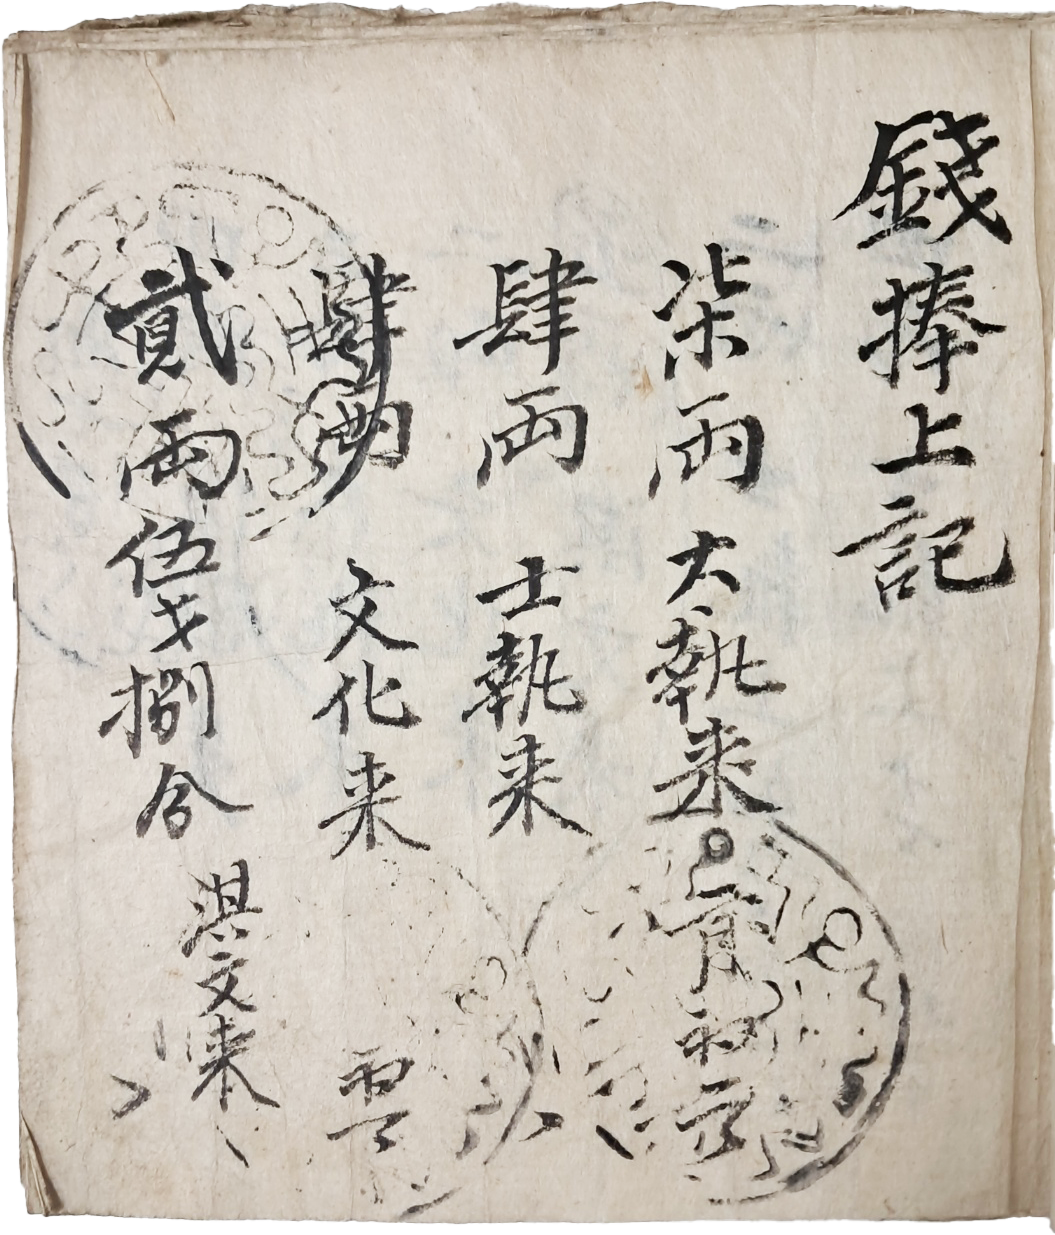 錢捧上記
柒両 大執来
肆両 士執来
肆両 文化来
貳両伍戈捌分 淇文来